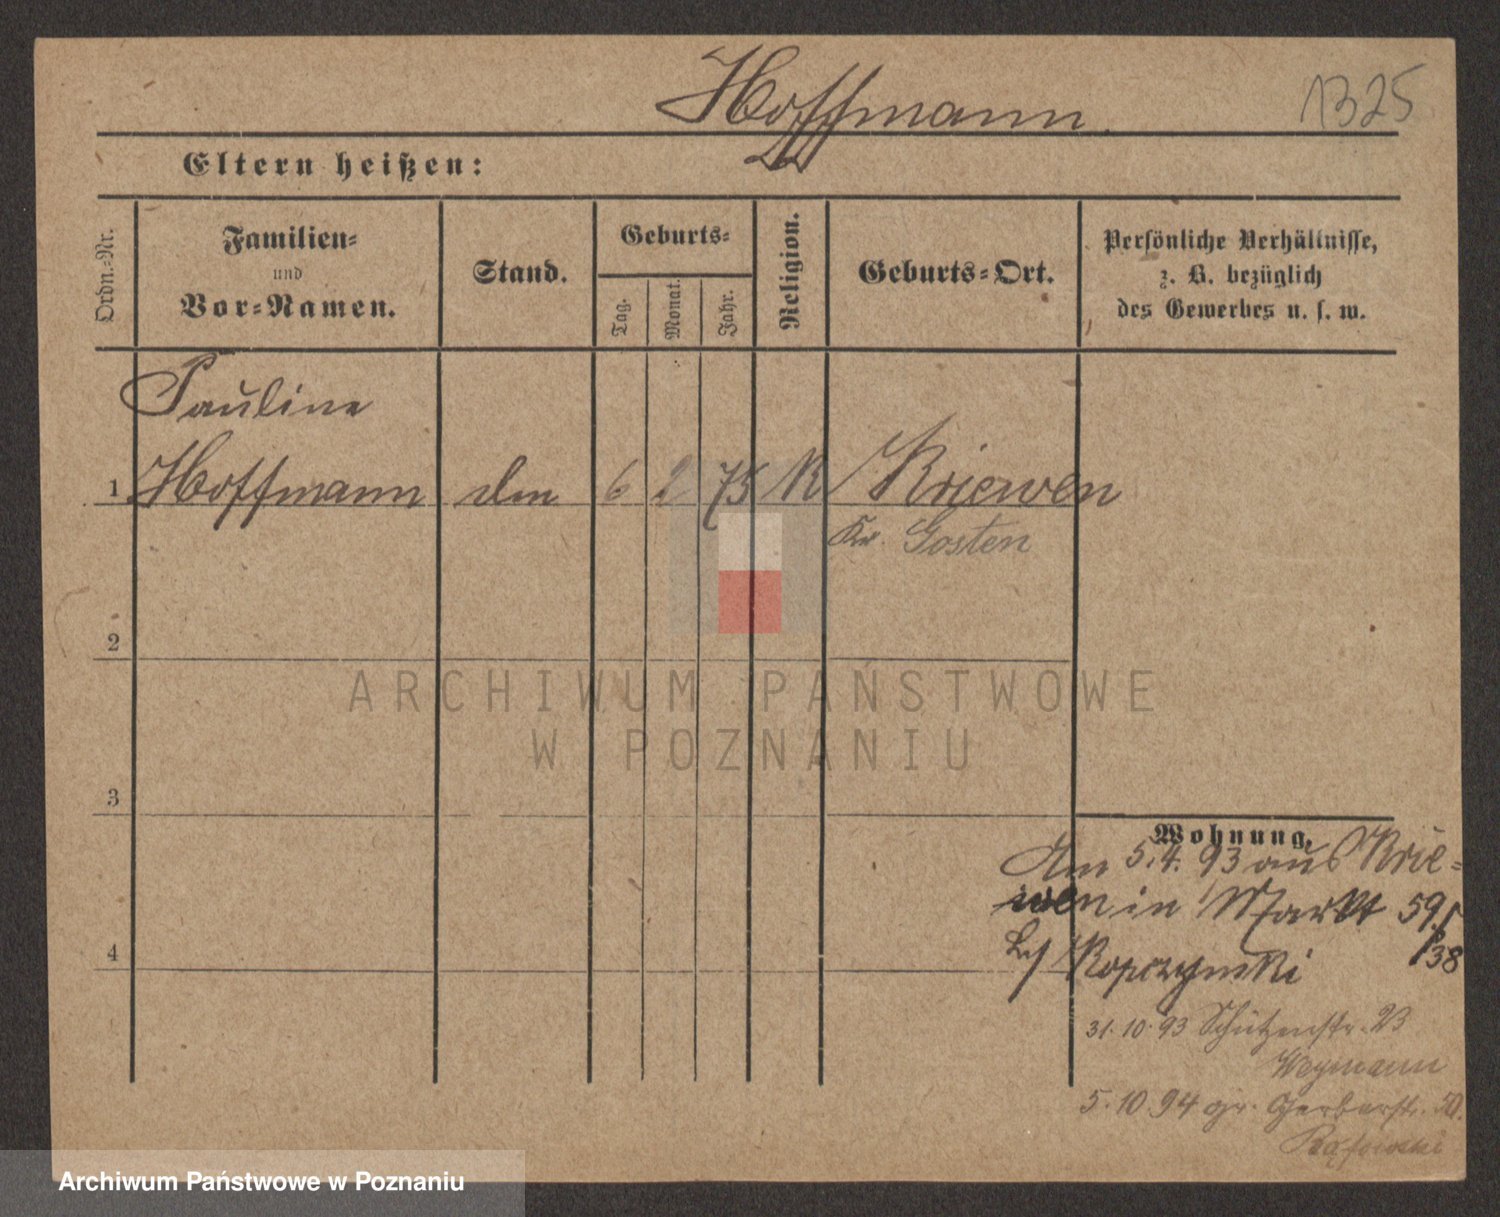 Hoffmann.
1325
Eltern heißen:
Ordn.-Nr.
Familien-
und
Vor-Namen.
Stand.
Geburts-
Tag.
Monat.
Jahr.
Religion.
Geburts-Ort.
Persönliche Verhältnisse,
z. B. bezüglich
des Gewerbes u. s. w.
Pauline
1 Hoffmann
6 2 75 K Kriewen
Kr. Gosten
2
ARCHIWUM PAŃSTWOWE
W POZNANIU
3
Wohnung.
Am 5.4.93 aus Krie-
wen in Markt 59
/38
b/ Kopczynski
4
31.10.93 Schützenstr. 23
Weymann
5.10.94 gr. Gerberstr. 50.
Archiwum Państwowe w Poznaniu